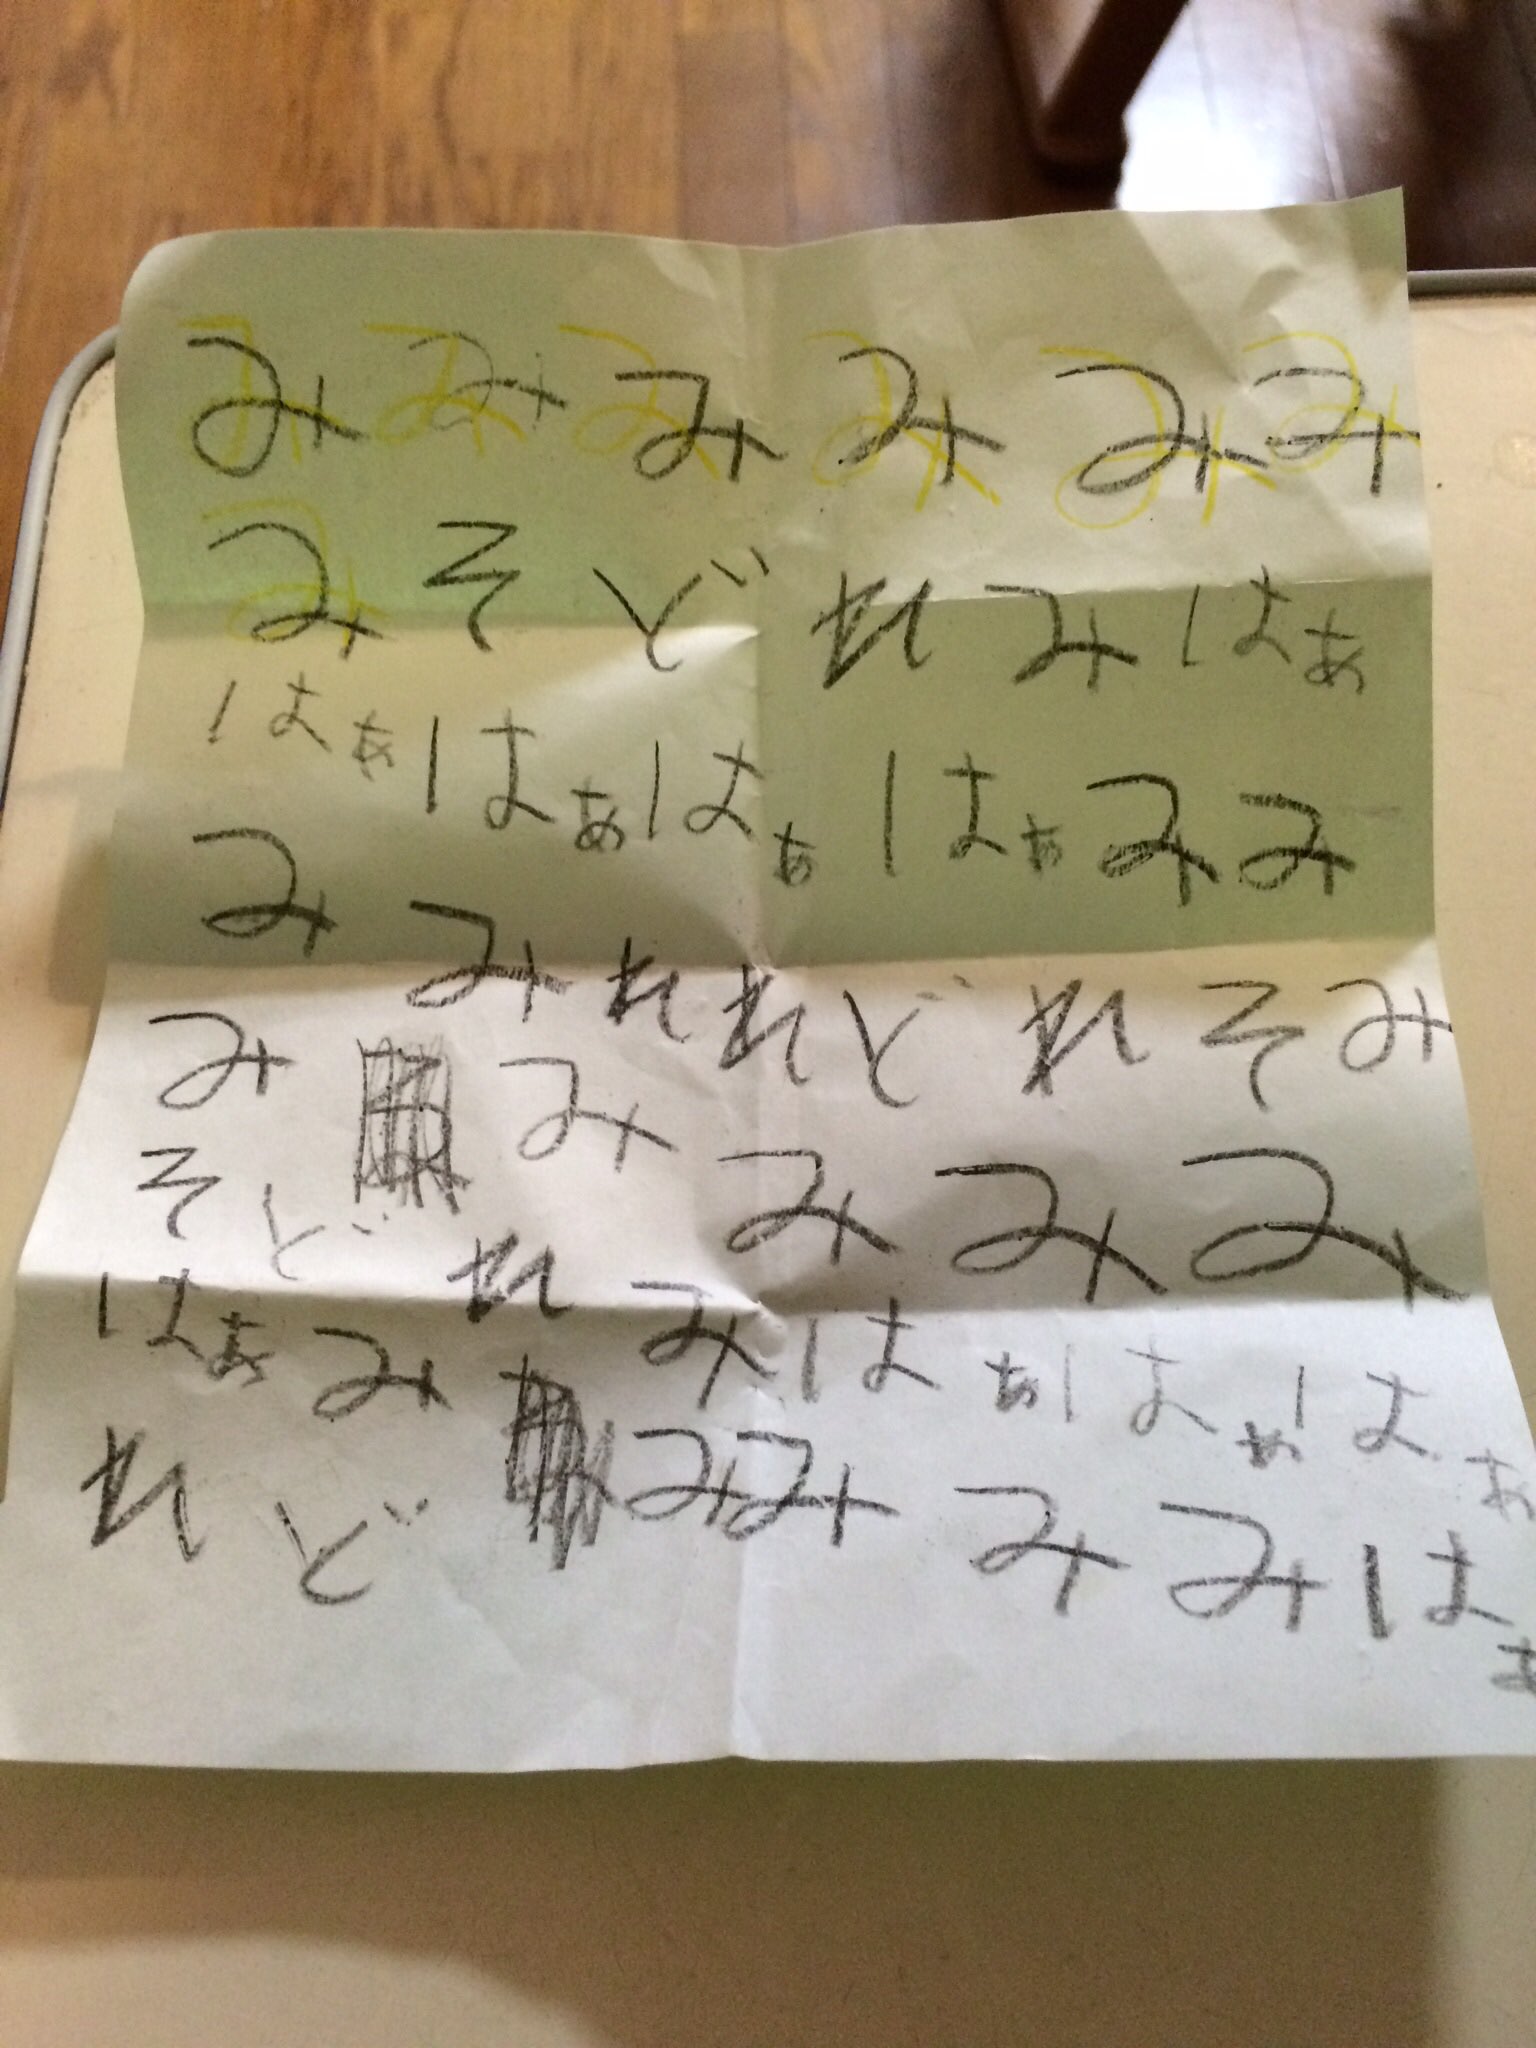 みみみみみみ
みそどれみはぁ
はぁはぁはぁはぁみみ
みみれれどれそみ
みみみみみ
そどれみはぁはぁはぁ
はぁみみみみみはぁ
れど